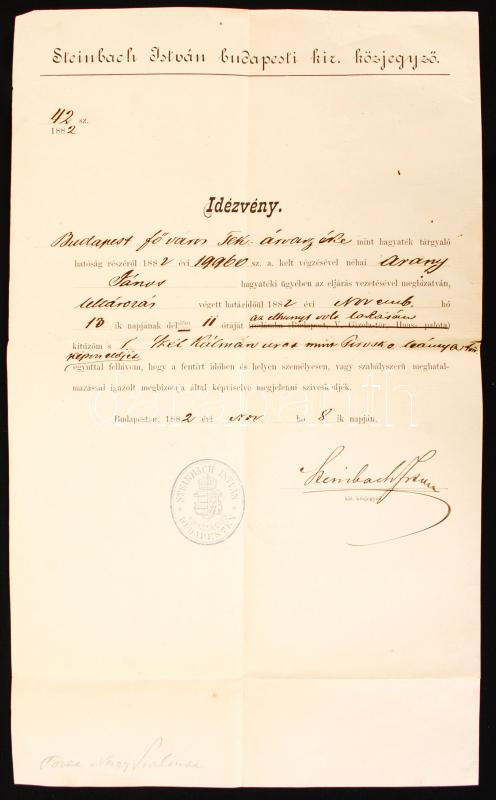 Steinbach István budapesti kir. közjegyző.
42 sz.
1882
Idézvény.
Budapest főváros Tek. árvaszéke mint hagyaték tárgyaló
hatóság részéről 1882 évi 19960 sz. a. kelt végzésével néhai Arany
János hagyatéki ügyében az eljárás vezetésével megbízatván,
leltározás végett határidőül 1882 évi Novemb. hó
13 ik napjának dél 11 óráját az elhunyt volt lakásán
(Budapest, V. Gizella-tér, Haas palota)
kitűzöm s Szél Kálmán urat mint Piroska leánya
képviselőjét egyuttal felhívom, hogy a fentirt időben és helyen személyesen, vagy szabályszerü meghatal-
mazással igazolt megbizott által képviselve megjelenni sziveskedjék.
Budapesten, 1882 évi Nov. hó 8 ik napján.
Steinbach István
kir. közjegyző
STEINBACH ISTVÁN
BUDAPESTEN
darabanth